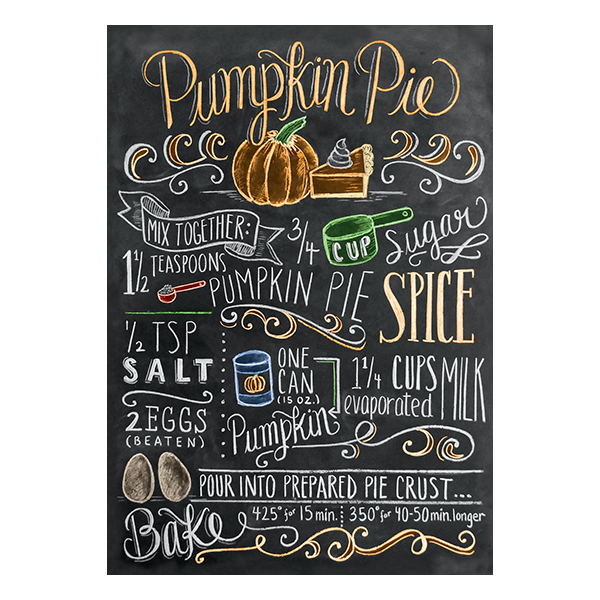 Pumpkin Pie
MIX TOGETHER:
3/4 CUP sugar
1 1/2 TEASPOONS
PUMPKIN PIE SPICE
1/2 TSP
SALT
2 EGGS
(BEATEN)
ONE
CAN
(15 OZ.)
Pumpkin
1 1/4 CUPS
evaporated MILK
POUR INTO PREPARED PIE CRUST...
Bake 425° for 15 min. 350° for 40-50 min. longer